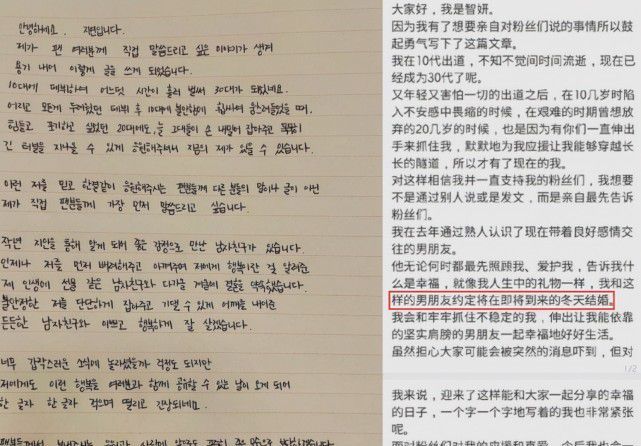 안녕하세요. 지연입니다.
제가 팬 여러분께 직접 말씀드리고 싶은 이야기가 생겨
용기 내어 이렇게 글을 쓰게 되었습니다.
10대에 데뷔하여 어느덧 시간이 흘러 벌써 30대가 되었네요.
어리고 모든게 두려웠던 데뷔 후 10대에 불안함에 휩싸여 움츠러들었을 때.
힘들고 포기하고 싶었던 20대에도, 늘 그대들이 손 내밀어 잡아주고 묵묵히
긴 터널을 지나올 수 있게 응원해주셔서 지금의 제가 있을 수 있습니다.
이런 저를 믿고 한결같이 응원해주시는 팬분들께 다른 분들의 말이나 글이 아닌
제가 직접 팬분들께 가장 먼저 말씀드리고 싶습니다.
작년 지인을 통해 알게 되어 좋은 감정으로 만난 남자친구가 있습니다.
언제나 저를 먼저 배려해주고 아껴주며 저에게 행복이란 걸 알려준
제 인생에 선물 같은 남자친구와 다가올 겨울에 결혼을 약속했습니다.
불안정한 저를 단단하게 잡아주고 기댈 수 있게 어깨를 내어준
든든한 남자친구와 이쁘고 행복하게 잘 살겠습니다.
너무 갑작스러운 소식에 놀라셨을까 걱정도 되지만
저에게도 이런 행복을 여러분과 함께 공유할 수 있는 날이 오게 되어
한 글자 한 글자 적으며 떨리고 긴장되네요.
大家好，我是智妍。
因为我有了想要亲自对粉丝们说的事情所以鼓
起勇气写下了这篇文章。
我在10代出道，不知不觉间时间流逝，现在已
经成为30代了呢。
又年轻又害怕一切的出道之后，在10几岁时陷
入不安感中畏缩的时候，在艰难的时期曾想放
弃的20几岁的时候，也是因为有你们一直伸出
手来抓住我，默默地为我应援让我能够穿越长
长的隧道，所以才有了现在的我。
对这样相信我并一直支持我的粉丝们，我想要
不是通过别人说或是发文，而是亲自最先告诉
粉丝们。
我在去年通过熟人认识了现在带着良好感情交
往的男朋友。
他无论何时都最先照顾我、爱护我，告诉我什
么是幸福，就像我人生中的礼物一样，我和这
样的男朋友约定将在即将到来的冬天结婚。
我会和牢牢抓住不稳定的我，伸出让我能依靠
的坚实肩膀的男朋友一起幸福地好好生活。
虽然担心大家可能会被突然的消息吓到，但对
1/2
我来说，迎来了这样能和大家一起分享的幸福
的日子，一个字一个字地写着的我也非常紧张
呢。